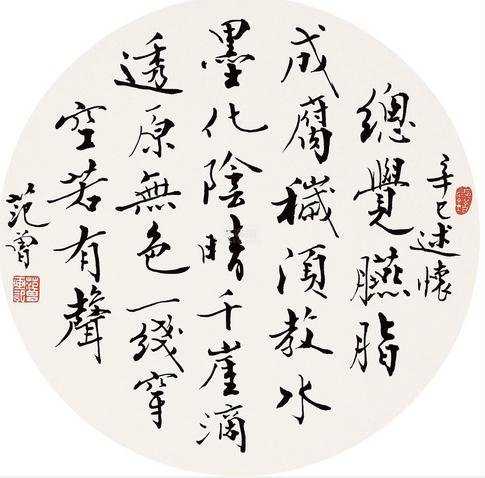 辛巳述懷
總覺臙脂
成腐穢須教水
墨化陰晴千崖滴
透原無色一綫穿
空若有聲
范曾